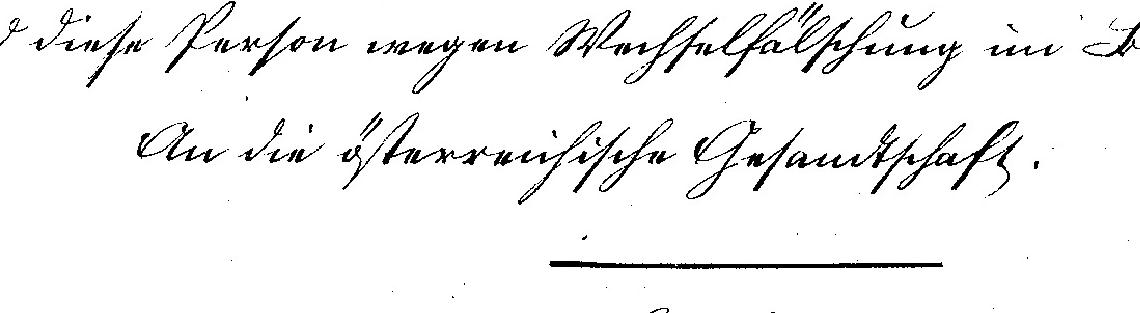 diese Person wegen Wechselfälschung im
An die österreichische Gesandtschaft.